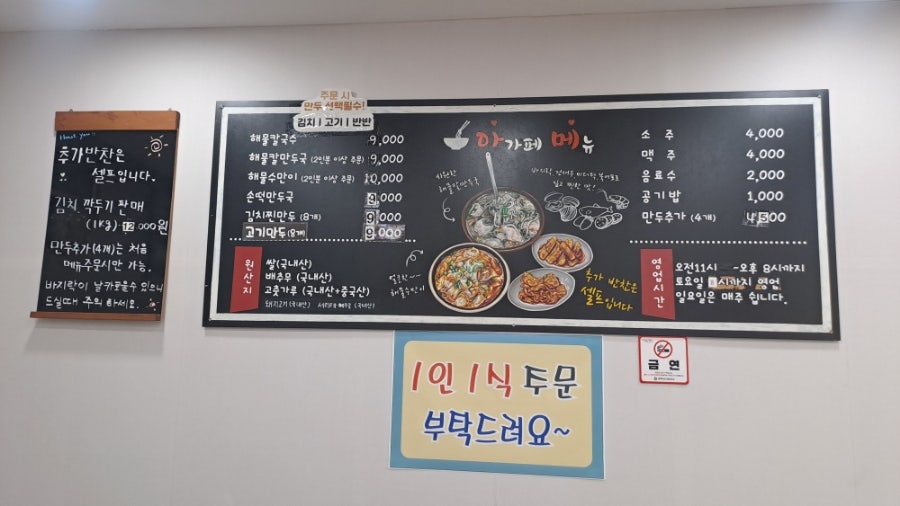 Thank you!!
추가반찬은
셀프입니다.
김치 깍두기 판매
(1kg)-12,000원
만두추가(4개)는 처음
메뉴주문시만 가능.
바지락이 날카로울수 있으니
드실때 주의하세요.
주문 시
만두 선택필수!
김치 | 고기 | 반반
해물칼국수 9,000
해물칼만두국 (2인분 이상 주문) 9,000
해물수만이 (2인분 이상 주문) 10,000
손떡만두국 9,000
김치찐만두 (8개) 9,000
고기만두 (8개) 9,000
원산지
쌀(국내산)
배추무 (국내산)
고춧가루 (국내산+중국산)
돼지고기(국내산)
아가페 메뉴
시원한
해물칼만두국
얼큰한~~
해물수만이
추가 반찬은
셀프입니다
소주 4,000
맥주 4,000
음료수 2,000
공기밥 1,000
만두추가 (4개) 4,500
영업시간
오전11시 -오후 8시까지
토요일 시까지 영업
일요일은 매주 쉽니다.
1인 1식 주문
부탁드려요~
금연